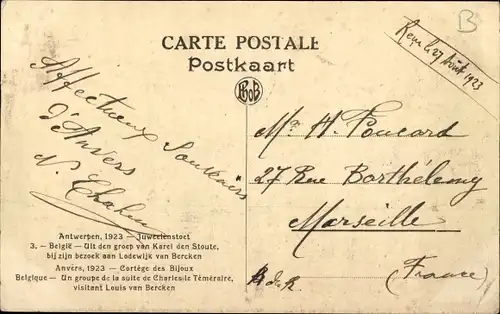 B
CARTE POSTALE
Postkaart
Reçu le 27 Août 1923
Affectueux Souvenirs
d'Anvers
Mr H. Foucard
27 Rue Barthélemy
Marseille
(France)
Antwerpen, 1923 — Juweelenstoet
3. — België — Uit den groep van Karel den Stoute,
bij zijn bezoek aan Lodewijk van Bercken
Anvers, 1923 — Cortège des Bijoux
Belgique — Un groupe de la suite de Charles le Téméraire,
visitant Louis van Bercken